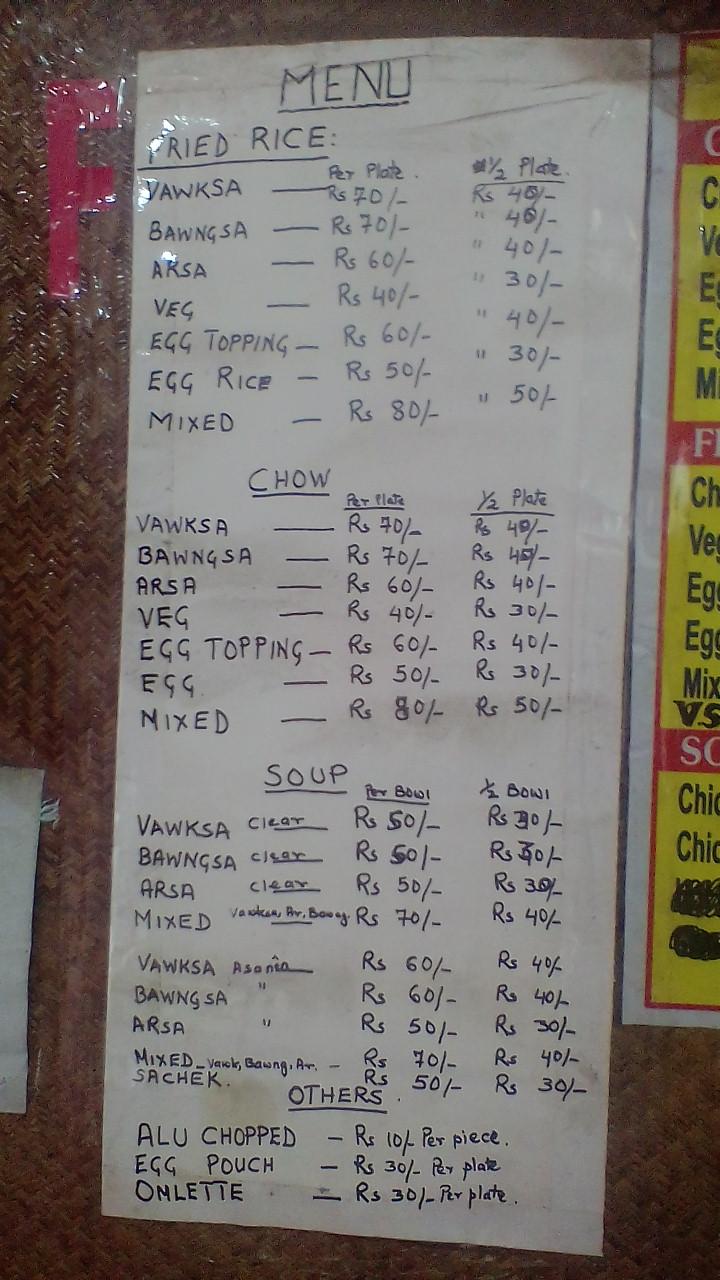 MENU
FRIED RICE:
Per Plate. 1/2 Plate.
VAWKSA — Rs 70/- Rs 40/-
BAWNGSA — Rs 70/- " 40/-
ARSA — Rs 60/- " 40/-
VEG — Rs 40/- " 30/-
EGG TOPPING — Rs 60/- " 40/-
EGG RICE — Rs 50/- " 30/-
MIXED — Rs 80/- " 50/-
CHOW
Per Plate 1/2 Plate
VAWKSA — Rs 70/- Rs 40/-
BAWNGSA — Rs 70/- Rs 40/-
ARSA — Rs 60/- Rs 40/-
VEG — Rs 40/- Rs 30/-
EGG TOPPING — Rs 60/- Rs 40/-
EGG — Rs 50/- Rs 30/-
MIXED — Rs 80/- Rs 50/-
SOUP
Per Bowl 1/2 Bowl
VAWKSA clear Rs 50/- Rs 30/-
BAWNGSA clear Rs 50/- Rs 30/-
ARSA clear Rs 50/- Rs 30/-
MIXED Vawksa, Ar, Bawng Rs 70/- Rs 40/-
VAWKSA Rs 60/- Rs 40/-
BAWNGSA " Rs 60/- Rs 40/-
ARSA " Rs 50/- Rs 30/-
MIXED - Vawk, Bawng, Ar. - Rs 70/- Rs 40/-
SACHEK. Rs 50/- Rs 30/-
OTHERS.
ALU CHOPPED - Rs 10/- Per piece.
EGG POUCH - Rs 30/- Per plate
OMLETTE — Rs 30/- Per plate.
F
C
Ve
Eg
Eg
Mi
Ch
Veg
Egg
Egg
Mix
VS
SO
Chic
Chic